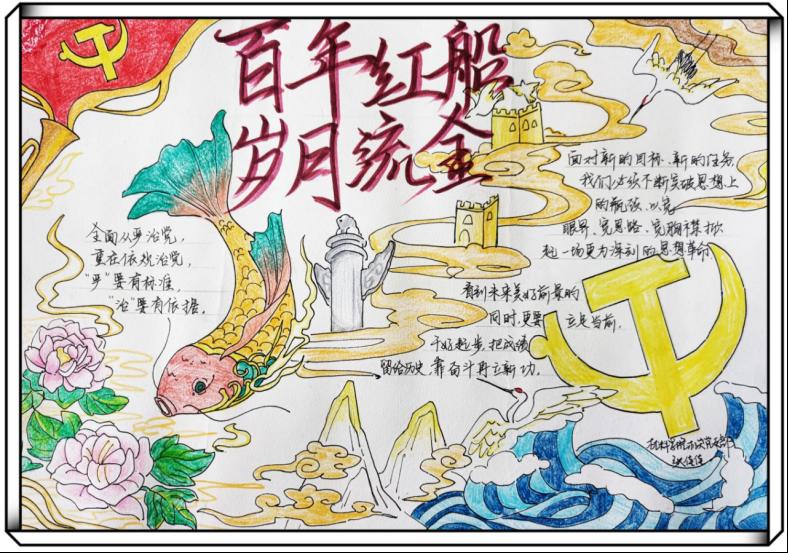 百年红船
岁月流金
全面从严治党,
重在依规治党,
“严”要有标准,
“治”要有依据.
面对新的目标、新的任务
我们必须不断突破思想上
的瓶颈、以宽
眼界、宽思路、宽胸襟掀
起一场更为深刻的思想革命
看到未来美好前景的
同时,更要 立足当前.
干好起步,把成绩
留给历史,靠奋斗再立新功.